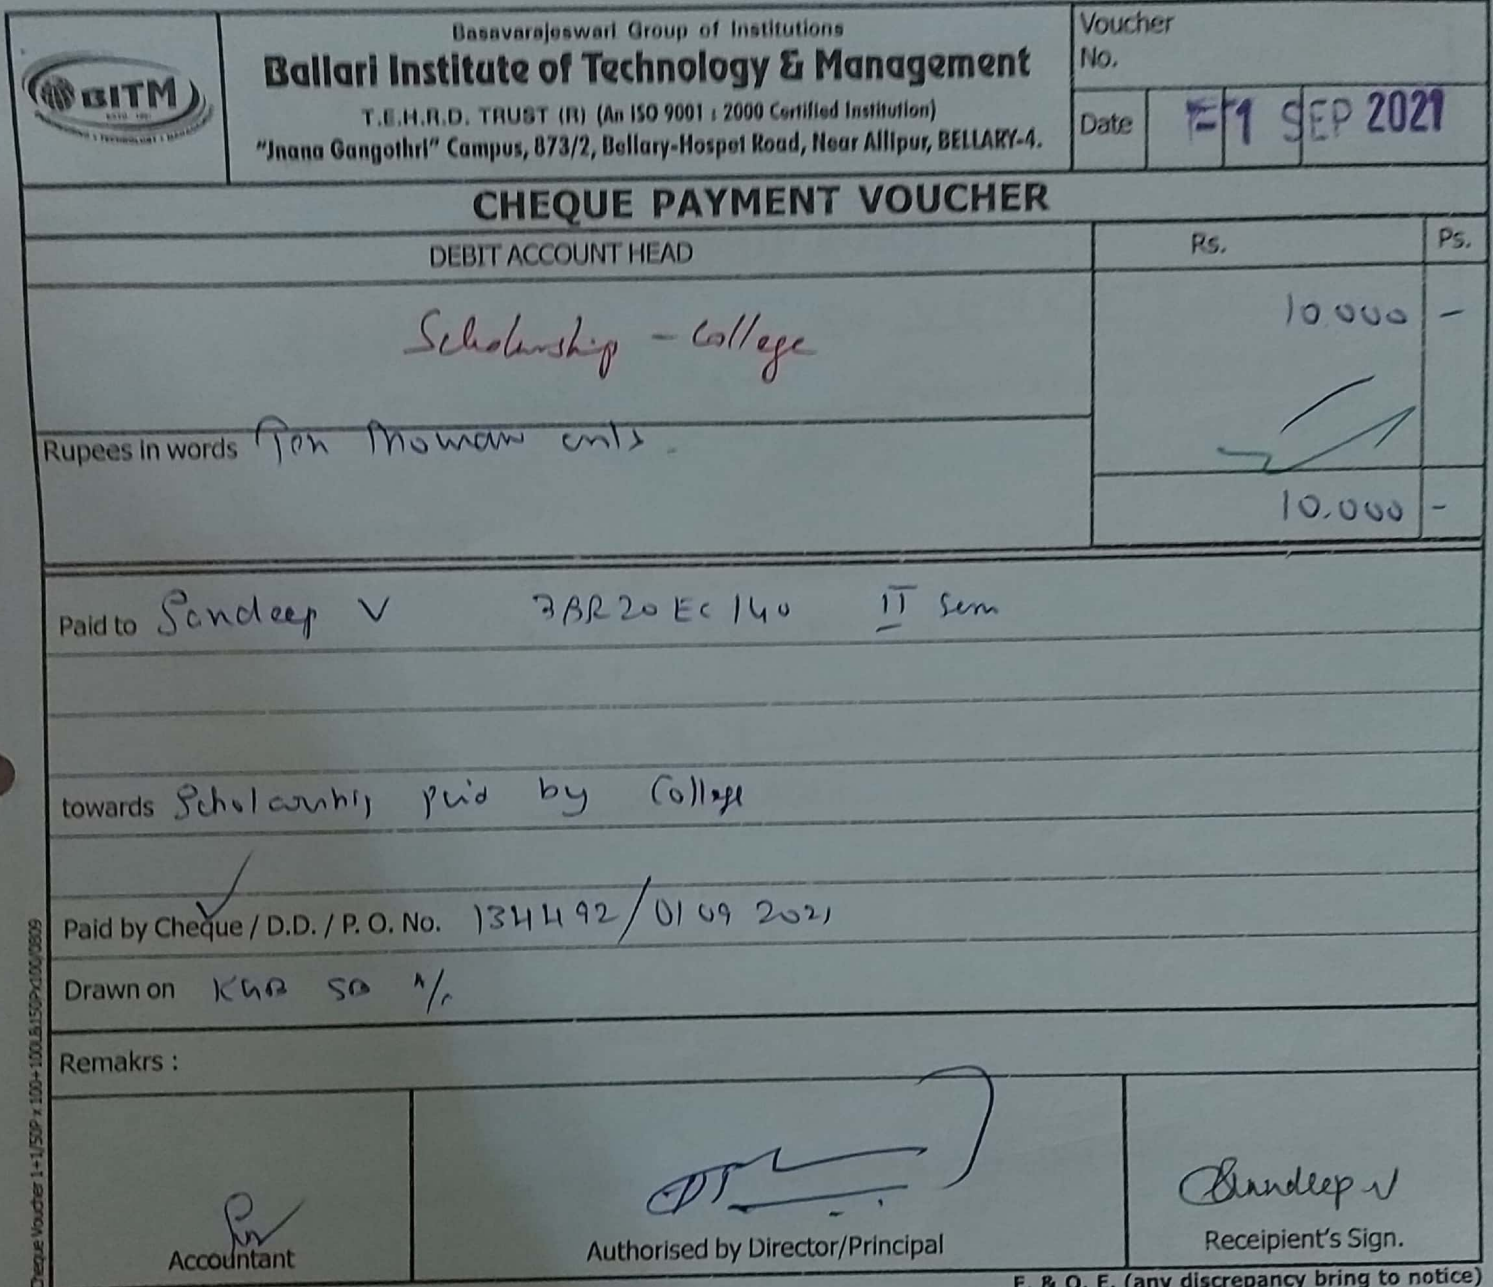 Basavarajeswari Group of Institutions
Ballari Institute of Technology & Management
T.E.H.R.D. TRUST (R) (An ISO 9001 : 2000 Certified Institution)
"Jnana Gangothri" Campus, 873/2, Bellary-Hospet Road, Near Allipur, BELLARY-4.
BITM
Voucher
No.
Date 1 SEP 2021
CHEQUE PAYMENT VOUCHER
DEBIT ACCOUNT HEAD Rs. Ps.
Scholarship - College 10.000 -
Rupees in words Ten Thousan only
10.000 -
Paid to Sandeep V 3BR20EC140 II Sem
towards Scholarship paid by College
Paid by Cheque / D.D. / P. O. No. 134492/01 09 2021
Drawn on KGB SB A/c
Remakrs :
Accountant
Authorised by Director/Principal
Sandeep V
Receipient's Sign.
E. & O. E. (any discrepancy bring to notice)
Cheque Voucher 1+1/50P x 100+100LB150Px100/0809